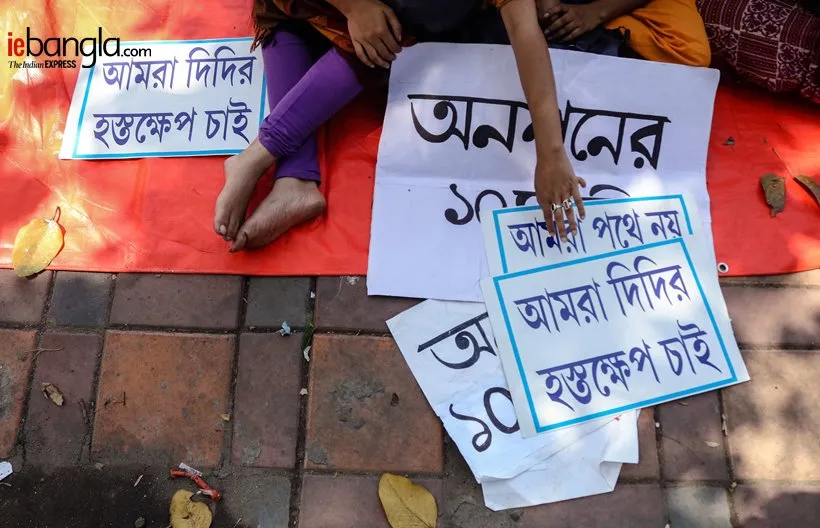 iebangla.com
The Indian EXPRESS
আমরা দিদির
হস্তক্ষেপ চাই
অনশনের
১০
আমরা পথে নয়
আমরা দিদির
হস্তক্ষেপ চাই
১০